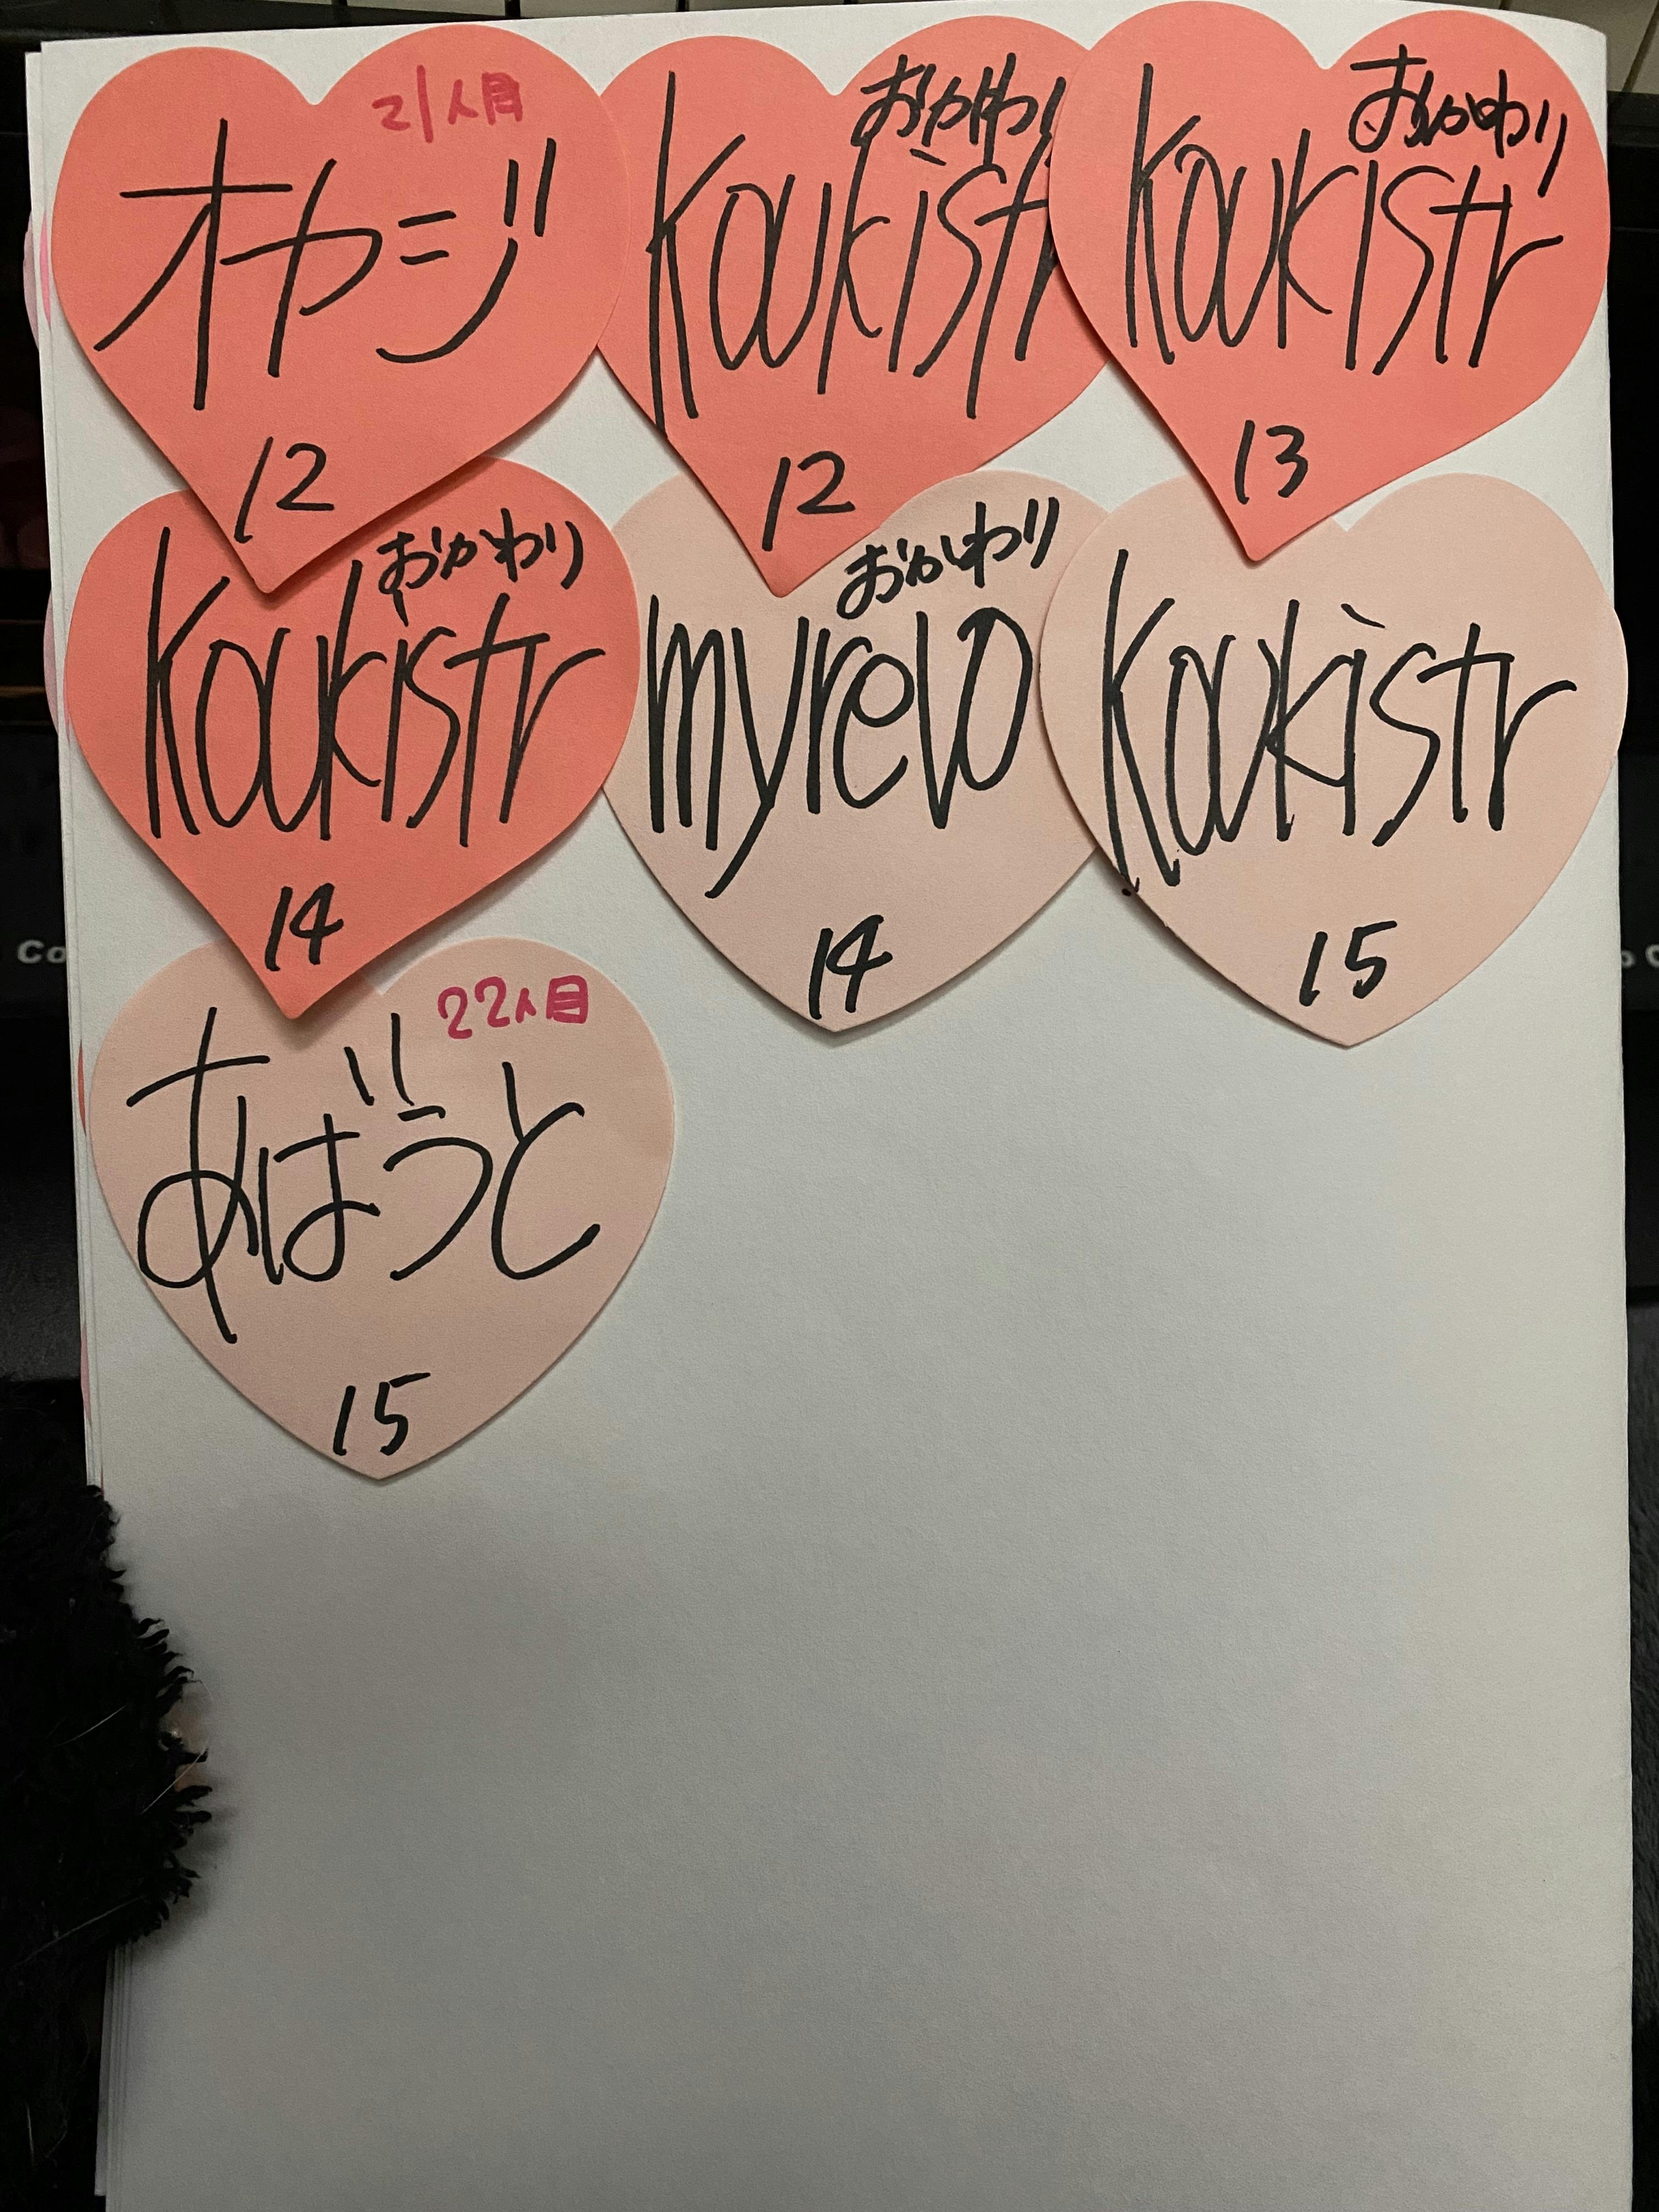 21人目
オカニジ
12
おかわり
Koukistr
12
おかわり
Koukistr
13
おかわり
Koukistr
14
おかわり
myrevo
14
Koukistr
15
22人目
あばうと
15
Co